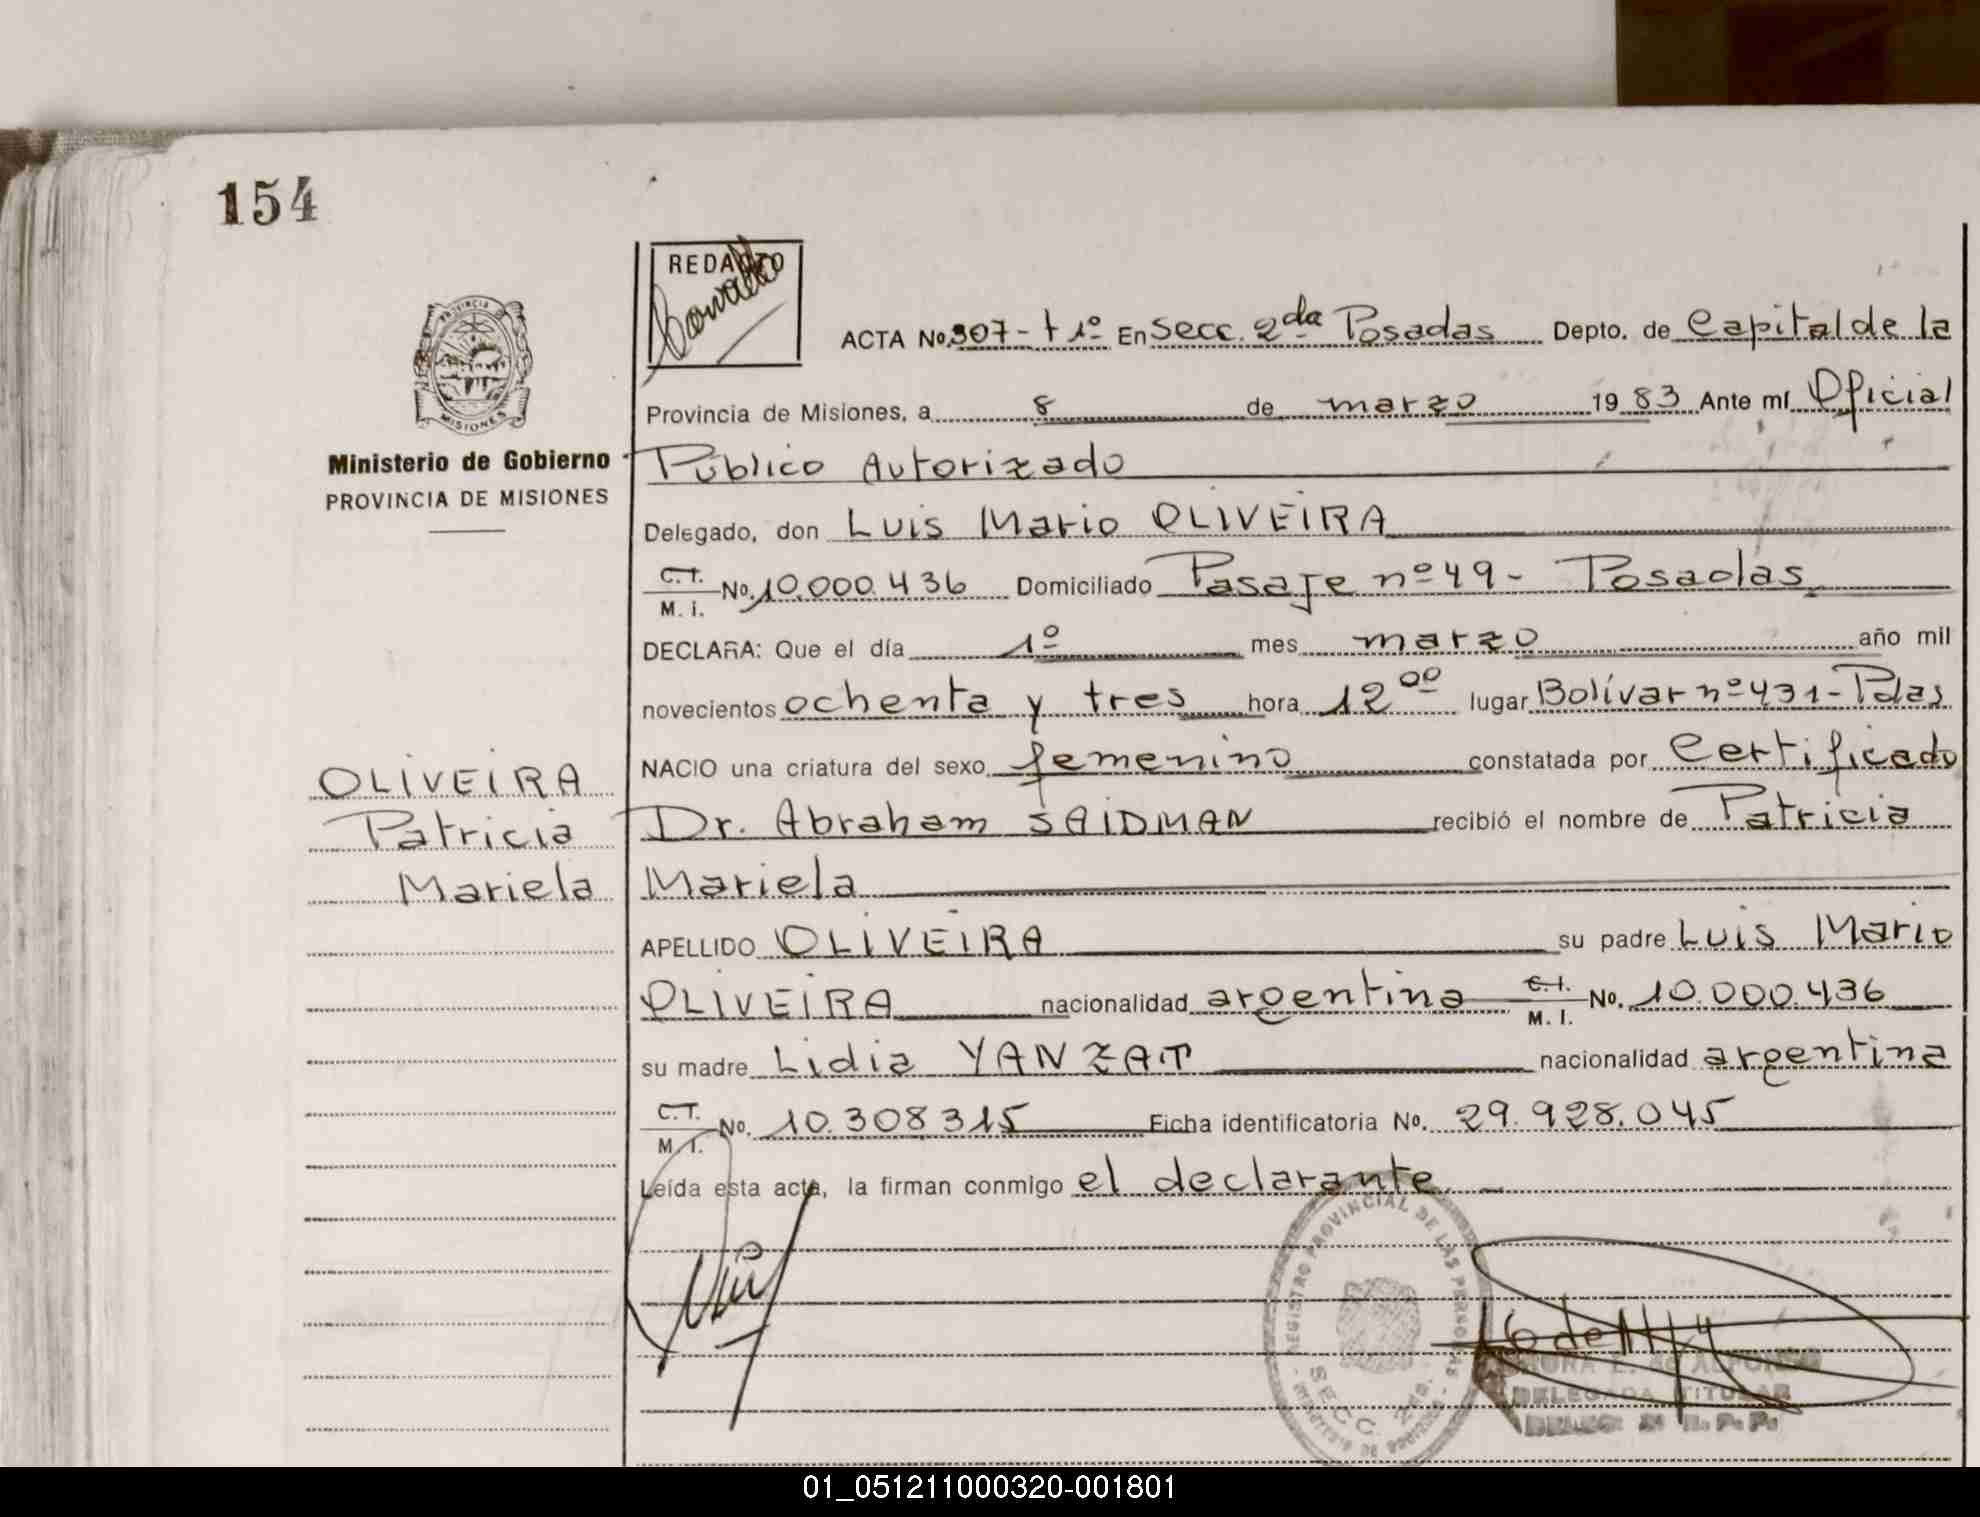 154
REDACTO
PROVINCIA
MISIONES
ACTA No. 307 - t 1º En Secc. 2da Posadas Depto. de Capital de la
Provincia de Misiones, a 8 de marzo 1983 Ante mí Oficial
Ministerio de Gobierno
PROVINCIA DE MISIONES
Público Autorizado
Delegado, don Luis Mario OLIVEIRA
C.I. M. I. No. 10.000.436 Domiciliado Pasaje nº 49 - Posadas
DECLARA: Que el día 1º mes marzo año mil
novecientos ochenta y tres hora 12 00 lugar Bolívar nº 431 - Pdas
NACIO una criatura del sexo femenino constatada por Certificado
OLIVEIRA
Patricia
Mariela
Dr. Abraham SAIDMAN recibió el nombre de Patricia
Mariela
APELLIDO OLIVEIRA su padre Luis Mario
OLIVEIRA nacionalidad argentina C.I. M. I. No. 10.000.436
su madre Lidia YANZAT nacionalidad argentina
C.I. M. I. No. 10.308315 Ficha identificatoria No. 29.928.045
Leída esta acta, la firman conmigo el declarante
REGISTRO PROVINCIAL DE LAS PERSONAS
SECC. 2da.
DELEGADA TITULAR
01_051211000320-001801